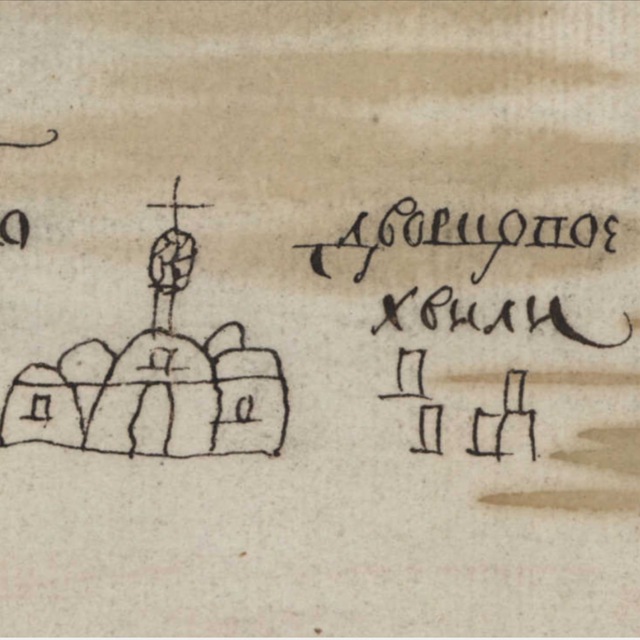 дворцопое
хвили